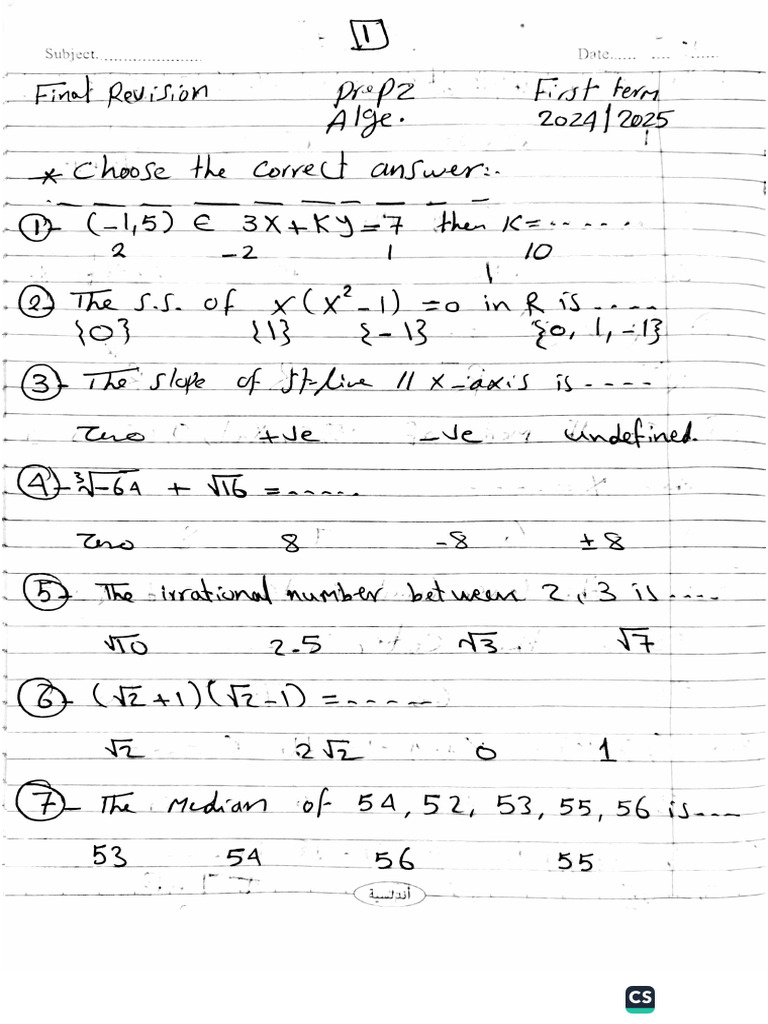 1
Subject.................... Date...... .... ......
Final Revision Prep2 First term
Alge. 2024/2025
* Choose the correct answer:.
① (-1,5) ∈ 3X+Ky=7 then K=......
2 -2 1 10
② The S.S. of x(x²-1)=0 in R is .....
{0} {1} {-1} {0, 1, -1}
③ The slope of st-line // X-axis is ....
Zero +ve -ve undefined.
④ ∛-64 + √16 = ......
Zero 8 -8 ±8
⑤ The irrational number between 2, 3 is ....
√10 2.5 √3 √7
⑥ (√2+1)(√2-1) = ......
√2 2√2 0 1
⑦ The Median of 54, 52, 53, 55, 56 is....
53 54 56 55
أندلسية
CS